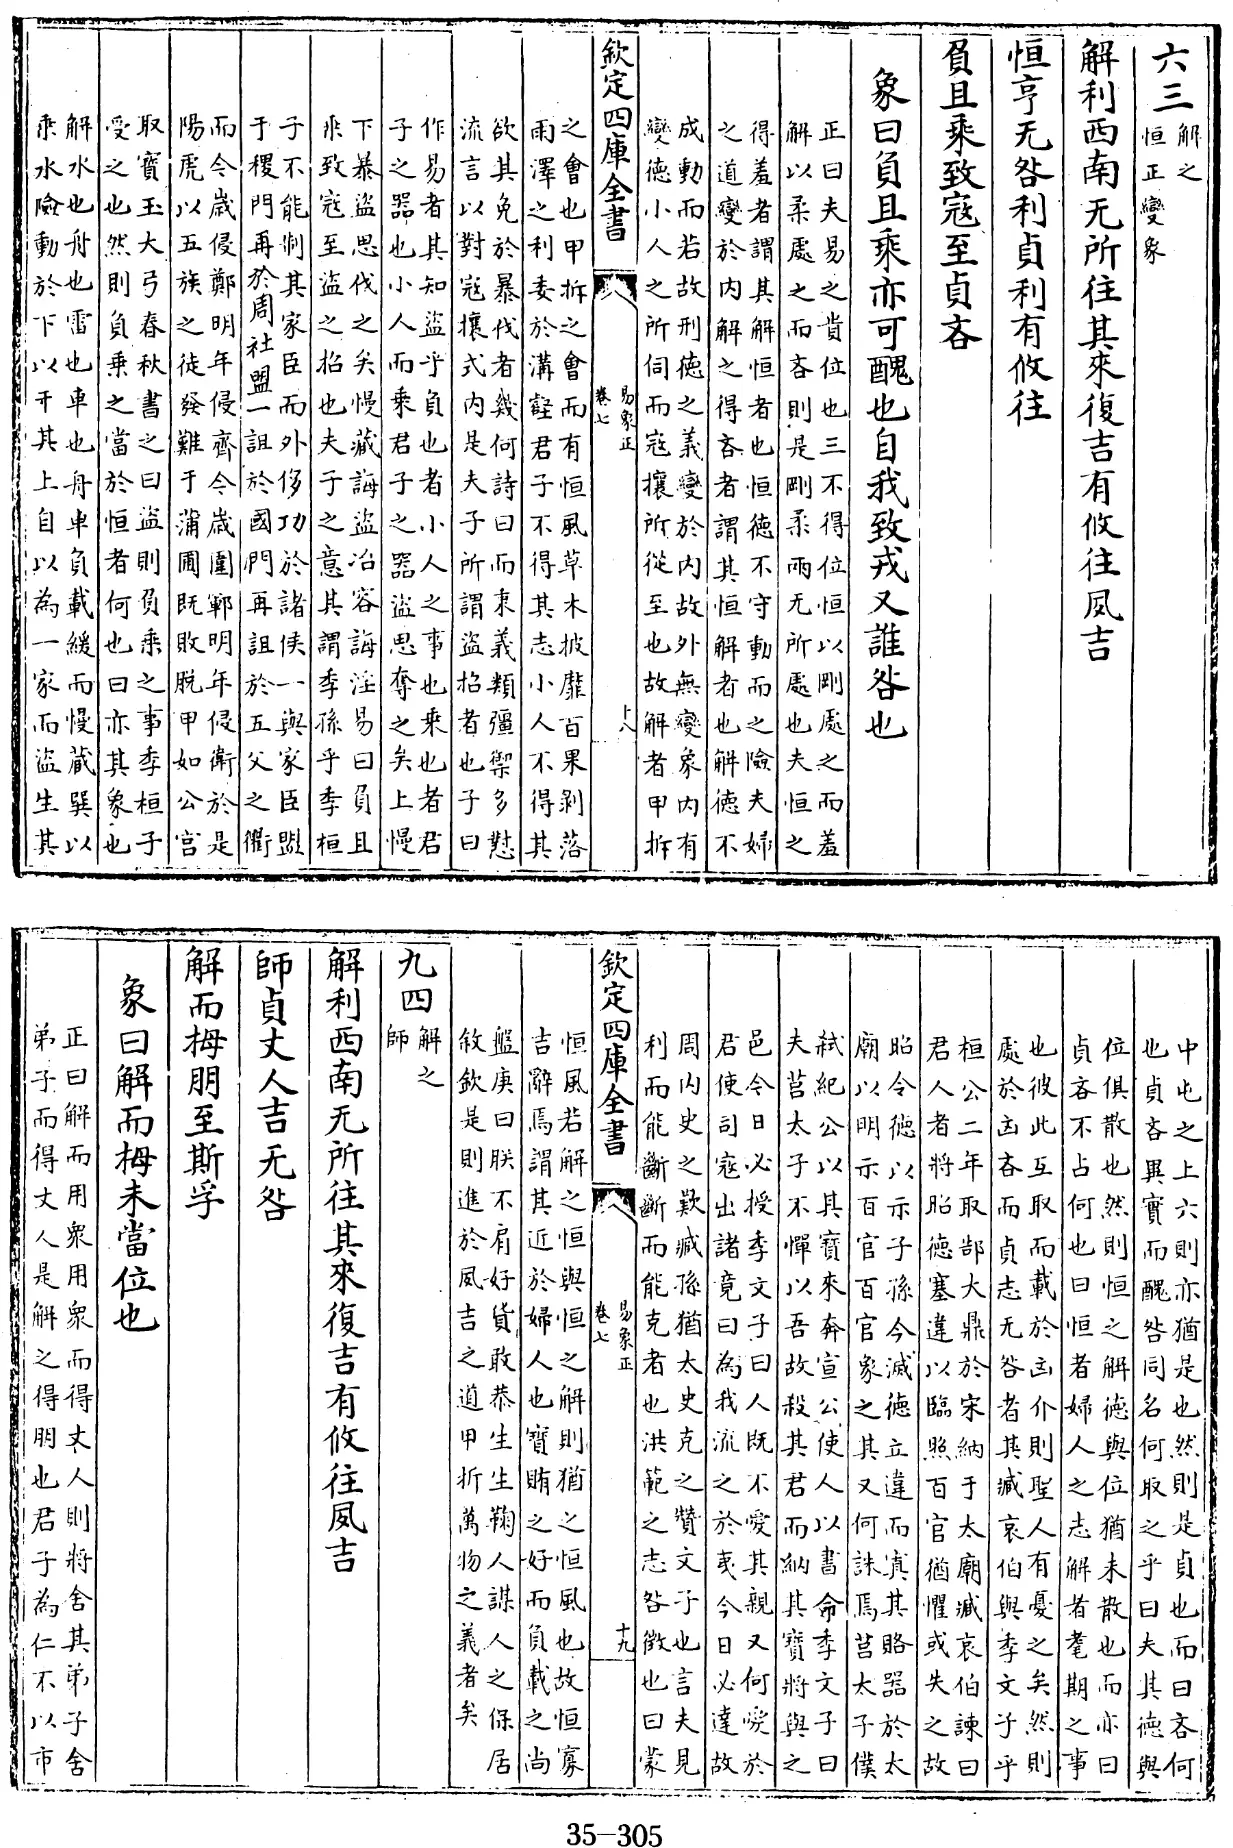 六三 解之
恒正變象
解利西南无所往其來復吉有攸往夙吉
恒亨无咎利貞利有攸往
負且乘致寇至貞吝
象曰負且乘亦可醜也自我致戎又誰咎也
正曰夫易之貴位也三不得位恒以剛處之而羞
解以柔處之而吝則是剛柔兩无所處也夫恒之
得羞者謂其解恒者也恒德不守動而之險夫婦
之道變於内解之得吝者謂其恒解者也解德不
成動而若故刑德之義變於内故外無變象内有
變德小人之所伺而寇攘所從至也故解者甲拆
欽定四庫全書
易象正
卷七
十八
之會也甲拆之會而有恒風草木披靡百果剥落
雨澤之利委於溝壑君子不得其志小人不得其
欲其免於暴伐者幾何詩曰而秉義類彊禦多懟
流言以對寇攘式内是夫子所謂盜招者也子曰
作易者其知盜乎負也者小人之事也乘也者君
子之器也小人而乘君子之器盜思奪之矣上慢
下暴盜思伐之矣慢藏誨盜冶容誨淫易曰負且
乘致寇至盜之招也夫子之意其謂季孫乎季桓
子不能制其家臣而外侈功於諸侯一與家臣盟
于稷門再於周社盟一詛於國門再詛於五父之衢
而今歲侵鄭明年侵齊今歲圍鄆明年侵衛於是
陽虎以五族之徒發難于蒲圃既敗脱甲如公宫
取寶玉大弓春秋書之曰盜則負乘之事季桓子
受之也然則負乘之當於恒者何也曰亦其象也
解水也舟也雷也車也舟車負載緩而慢藏巽以
乘水險動於下以干其上自以為一家而盜生其
中屯之上六則亦猶是也然則是貞也而曰吝何
也貞吝異實而醜咎同名何取之乎曰夫其德與
位俱散也然則恒之解德與位猶未散也而亦曰
貞吝不占何也曰恒者婦人之志解者耄期之事
也彼此互取而載於凶介則聖人有憂之矣然則
處於凶吝而貞志无咎者其臧哀伯與季文子乎
桓公二年取郜大鼎於宋納于太廟臧哀伯諫曰
君人者將昭德塞違以臨照百官猶懼或失之故
昭令德以示子孫今滅德立違而寘其賂器於太
廟以明示百官百官象之其又何誅焉莒太子僕
弑紀公以其寶來奔宣公使人以書命季文子曰
夫莒太子不憚以吾故殺其君而納其寶將與之
邑今日必授季文子曰人既不愛其親又何愛於
君使司寇出諸竟曰為我流之於夷今日必達故
周内史之歎臧孫猶太史克之贊文子也言夫見
利而能斷斷而能克者也洪範之志咎徵也曰蒙
欽定四庫全書
易象正
卷七
十九
恒風若解之恒與恒之解則猶之恒風也故恒寡
吉辭焉謂其近於婦人也寶賄之好而負載之尚
盤庚曰朕不肩好貨敢恭生生鞠人謀人之保居
敘欽是則進於夙吉之道甲拆萬物之義者矣
九四 解之
師
解利西南无所往其來復吉有攸往夙吉
師貞丈人吉无咎
解而拇朋至斯孚
象曰解而拇未當位也
正曰解而用衆用衆而得丈人則將舍其弟子舍
弟子而得丈人是解之得朋也君子為仁不以市
35—305